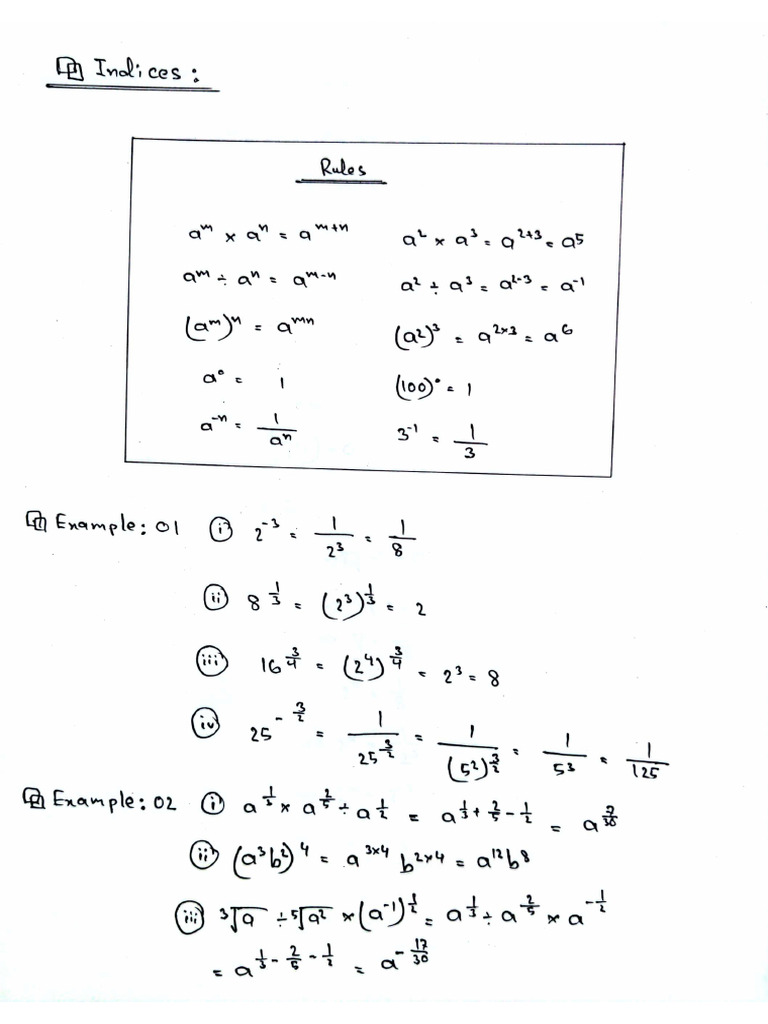 Indices:
Rules
aᵐ × aⁿ = aᵐ⁺ⁿ a² × a³ = a²⁺³ = a⁵
aᵐ ÷ aⁿ = aᵐ⁻ⁿ a² ÷ a³ = a²⁻³ = a⁻¹
(aᵐ)ⁿ = aᵐⁿ (a²)³ = a²ˣ³ = a⁶
a⁰ = 1 (100)⁰ = 1
a⁻ⁿ = 1/aⁿ 3⁻¹ = 1/3
Example: 01 (i) 2⁻³ = 1/2³ = 1/8
(ii) 8^(1/3) = (2³)^(1/3) = 2
(iii) 16^(3/4) = (2⁴)^(3/4) = 2³ = 8
(iv) 25^(-3/2) = 1/25^(3/2) = 1/(5²)^(3/2) = 1/5³ = 1/125
Example: 02 (i) a^(1/3) × a^(2/5) ÷ a^(1/2) = a^(1/3 + 2/5 - 1/2) = a^(7/30)
(ii) (a³b²)⁴ = a^(3×4) b^(2×4) = a¹²b⁸
(iii) ³√a ÷ ⁵√a² × (a⁻¹)^(1/2) = a^(1/3) ÷ a^(2/5) × a^(-1/2)
= a^(1/3 - 2/5 - 1/2) = a^(-17/30)